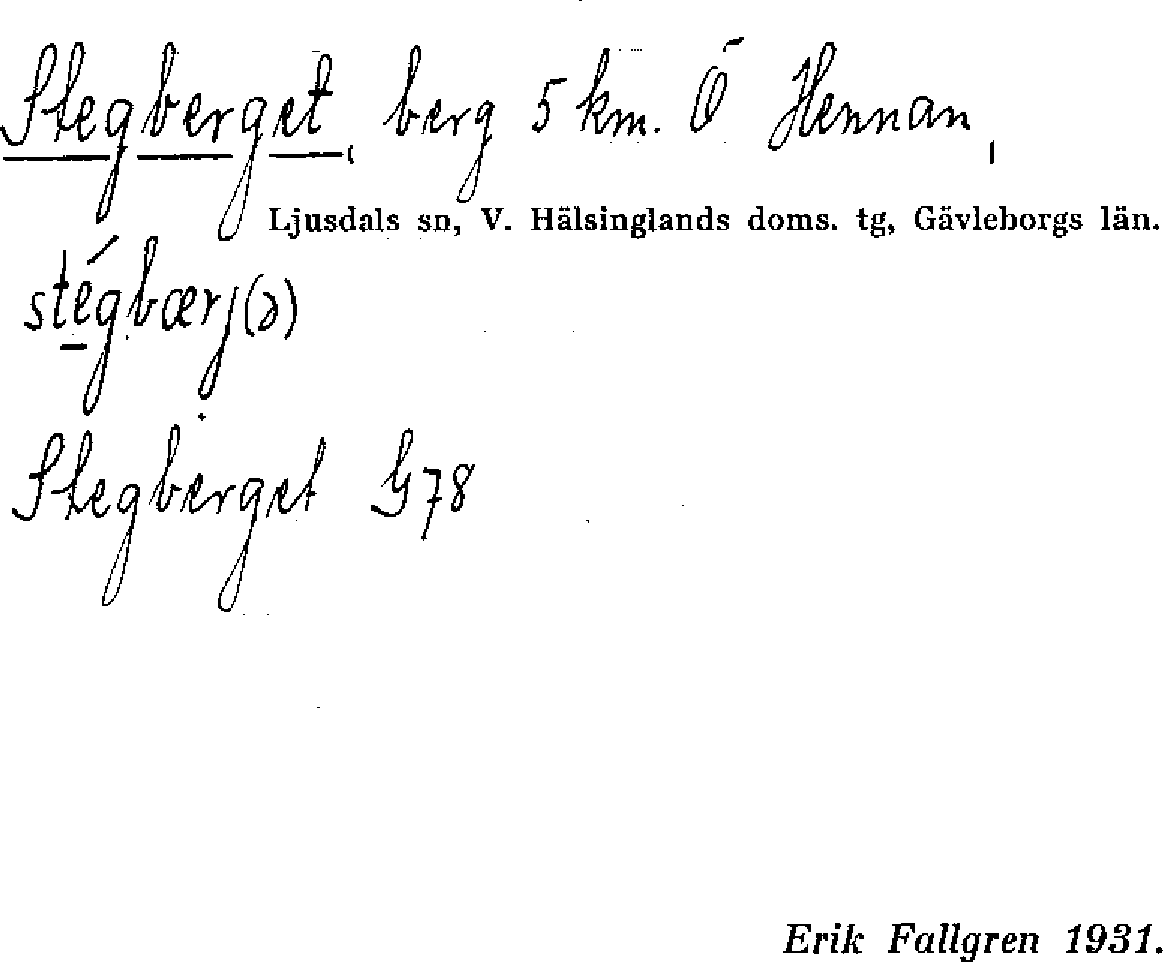 Stegberget, berg 5 km. Ö Hennan,
Ljusdals sn, V. Hälsinglands doms. tg, Gävleborgs län.
stégbærj(ə)
Stegberget G78
Erik Fallgren 1931.